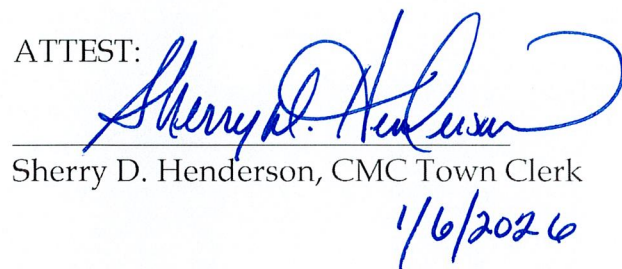 ATTEST:
Sherry D. Henderson
Sherry D. Henderson, CMC Town Clerk
1/6/2026